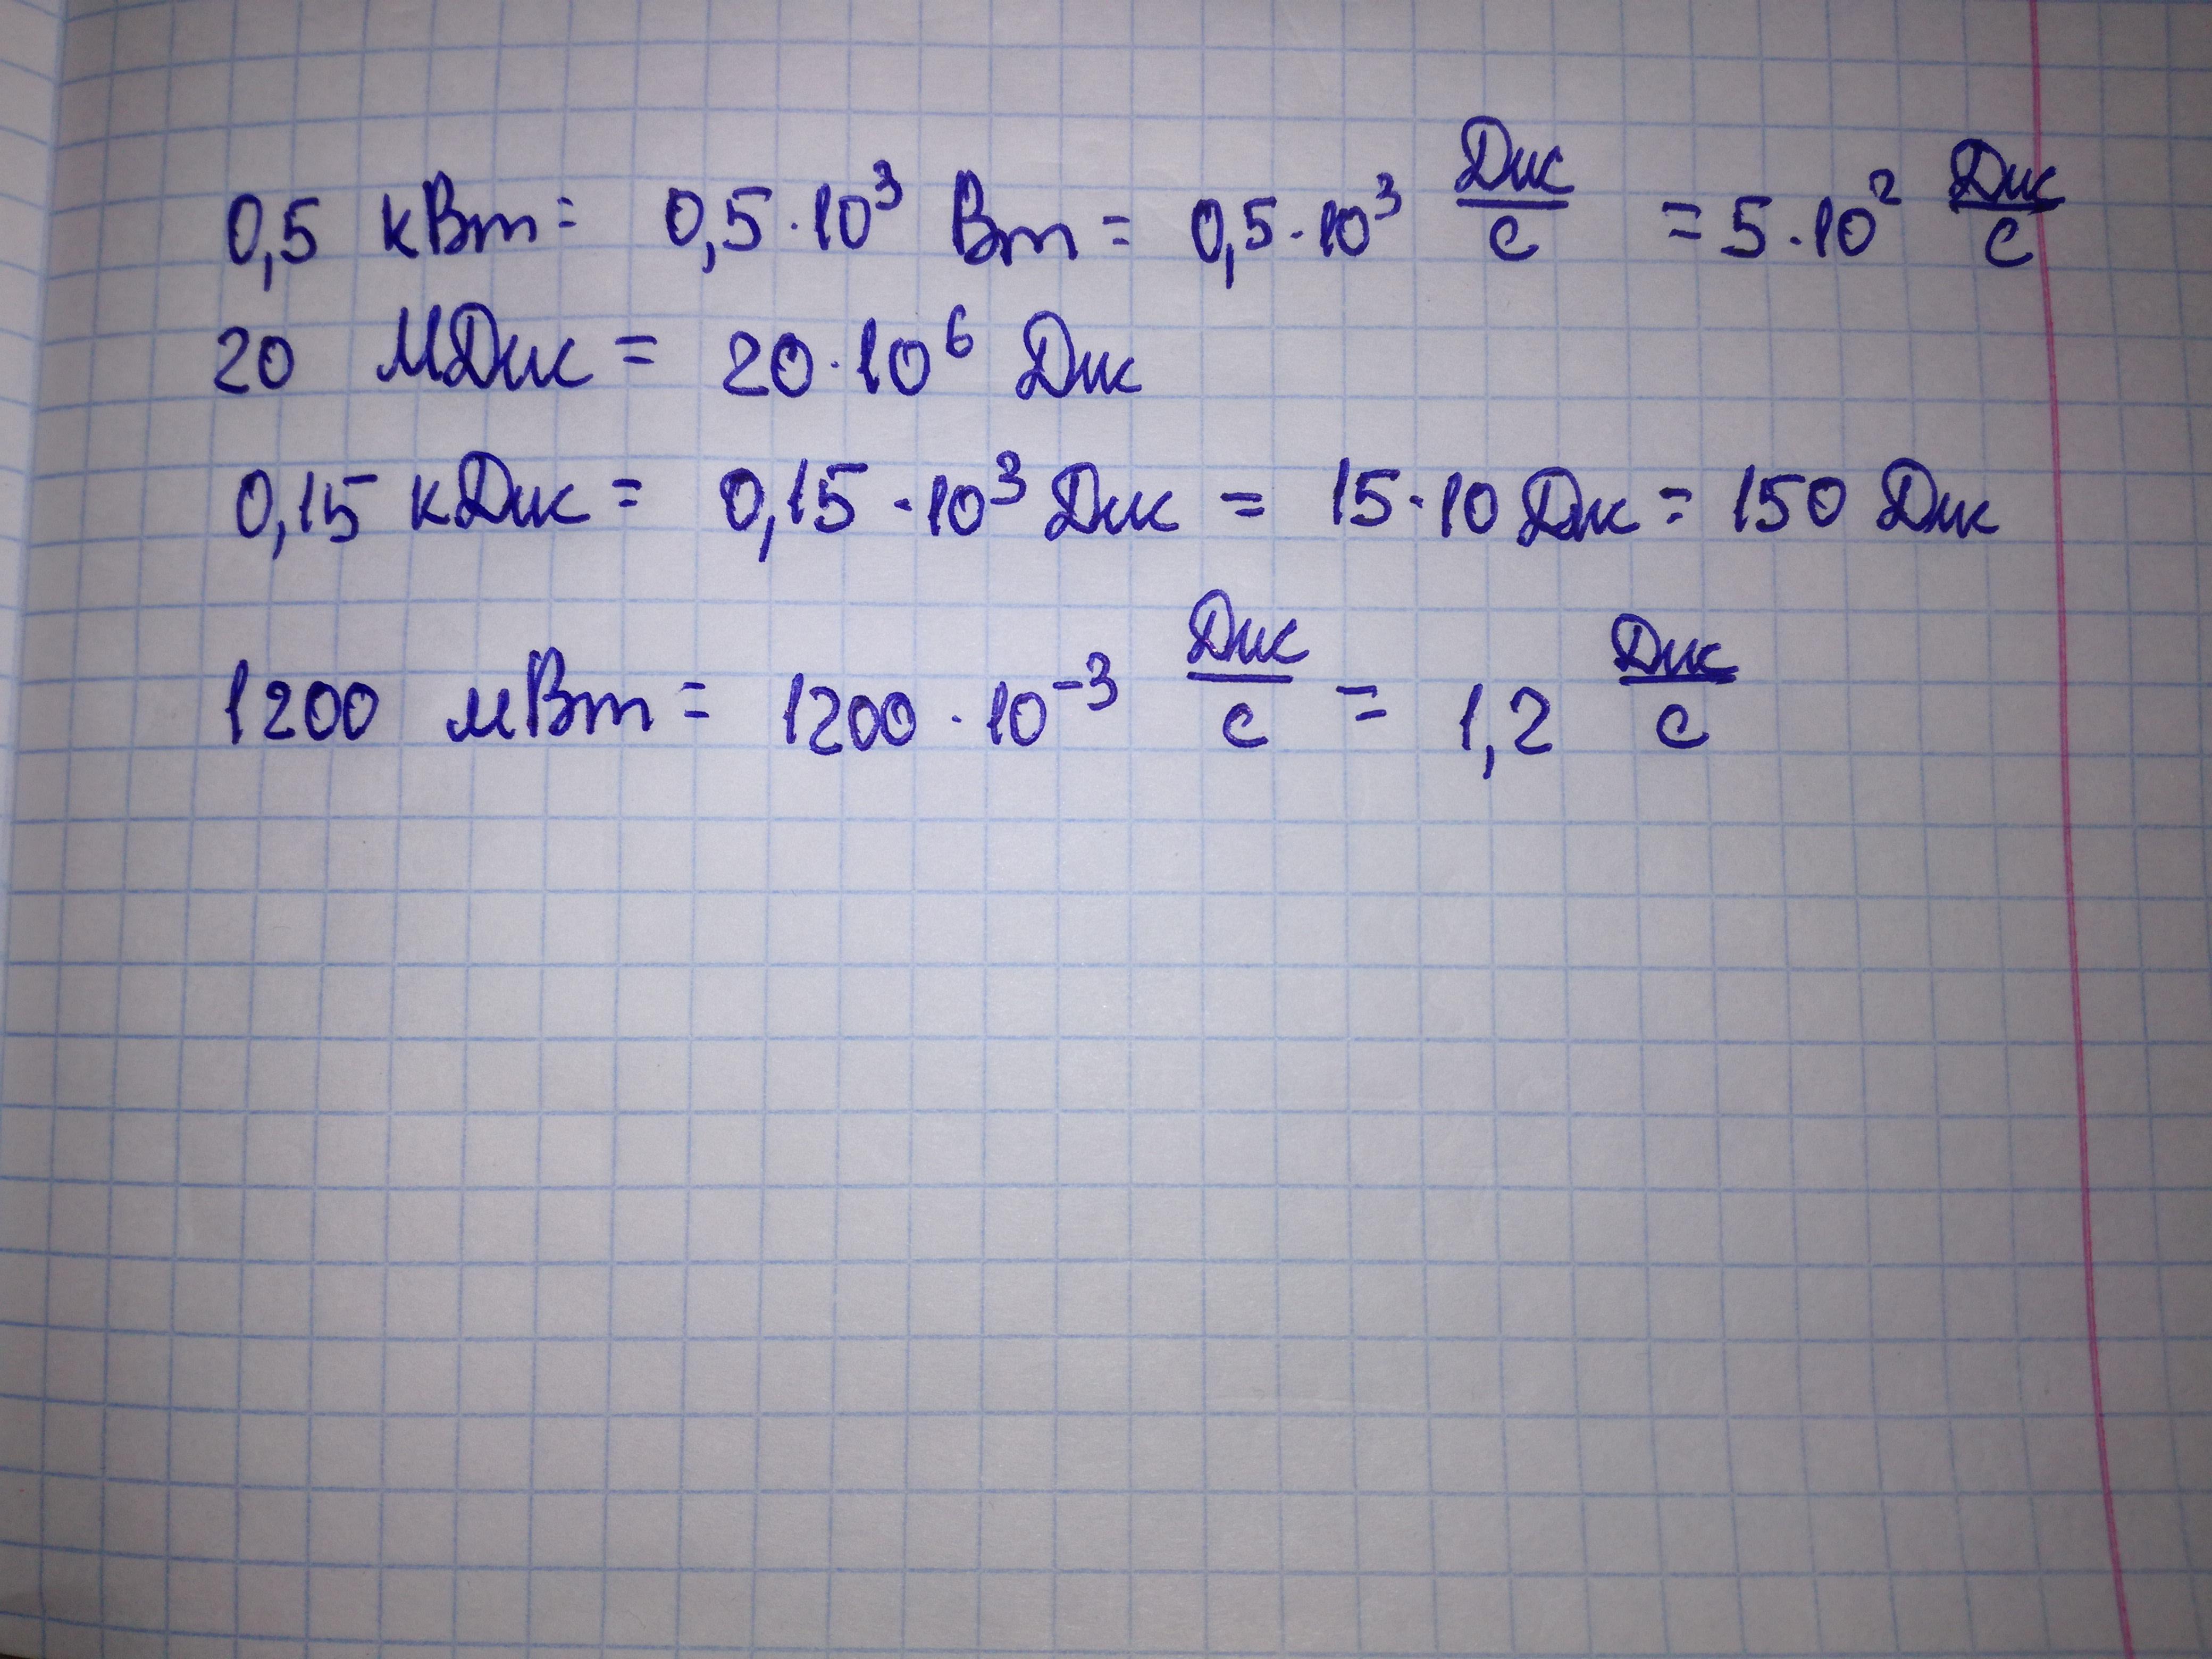 0,5 кВт = 0,5·10³ Вт = 0,5·10³ Дж/с = 5·10² Дж/с
20 МДж = 20·10⁶ Дж
0,15 кДж = 0,15·10³ Дж = 15·10 Дж = 150 Дж
1200 мВт = 1200·10⁻³ Дж/с = 1,2 Дж/с